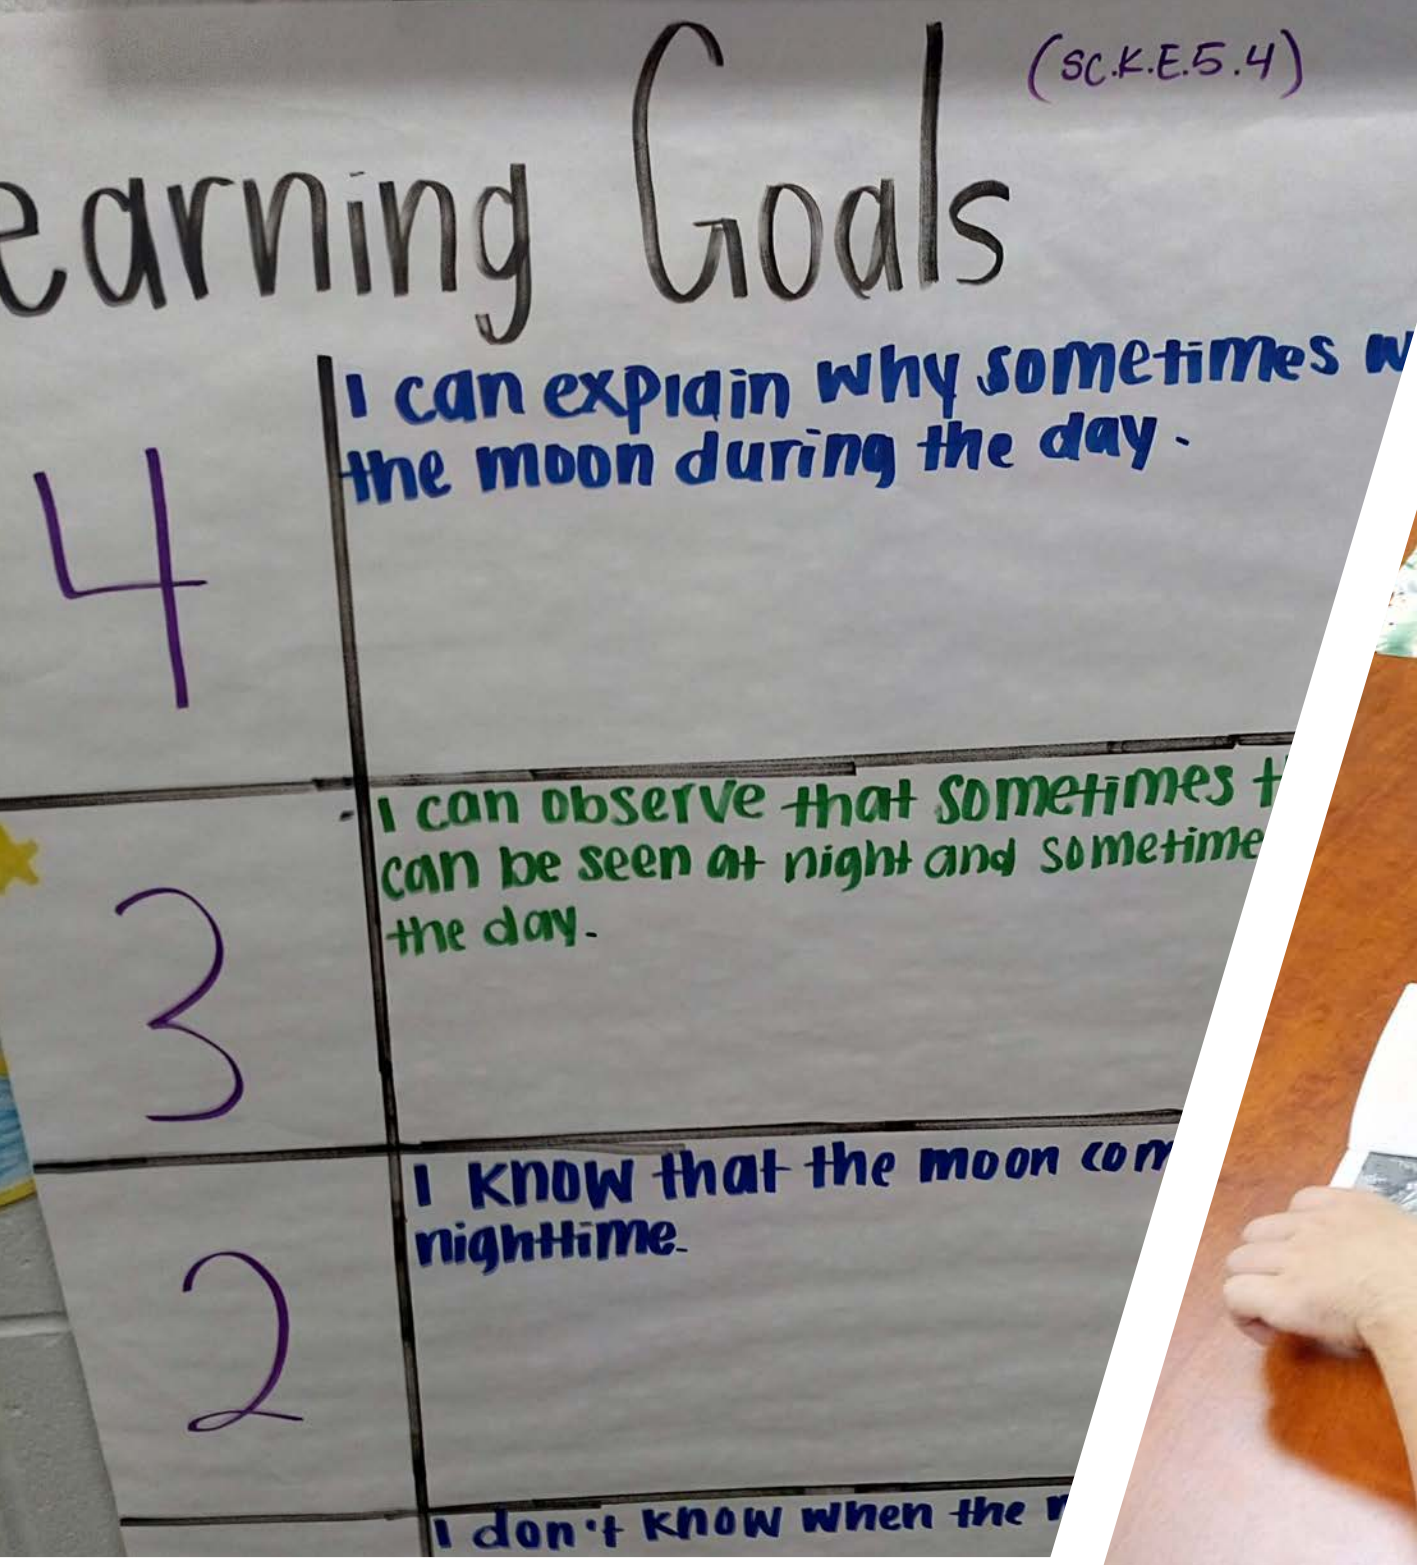 earning Goals
(SC.K.E.5.4)
4
I can explain why sometimes w
the moon during the day.
3
I can observe that sometimes t
can be seen at night and sometime
the day.
2
I know that the moon com
nighttime.
I don't know when the